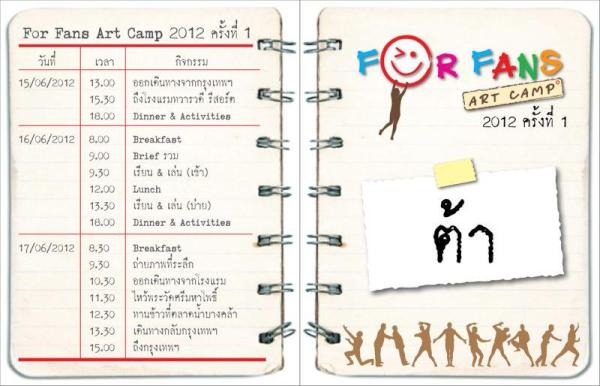 For Fans Art Camp 2012 ครั้งที่ 1
วันที่ เวลา กิจกรรม
15/06/2012 13.00 ออกเดินทางจากกรุงเทพฯ
15.30 ถึงโรงแรมทวารวดี รีสอร์ต
18.00 Dinner & Activities
16/06/2012 8.00 Breakfast
9.00 Brief รวม
9.30 เรียน & เล่น (เช้า)
12.00 Lunch
13.30 เรียน & เล่น (บ่าย)
18.00 Dinner & Activities
17/06/2012 8.30 Breakfast
9.30 ถ่ายภาพที่ระลึก
10.30 ออกเดินทางจากโรงแรม
11.30 ไหว้พระวัดศรีมหาโพธิ์
12.30 ทานข้าวที่ตลาดน้ำบางคล้า
13.30 เดินทางกลับกรุงเทพฯ
15.00 ถึงกรุงเทพฯ
FOR FANS
ART CAMP
2012 ครั้งที่ 1
ต้า